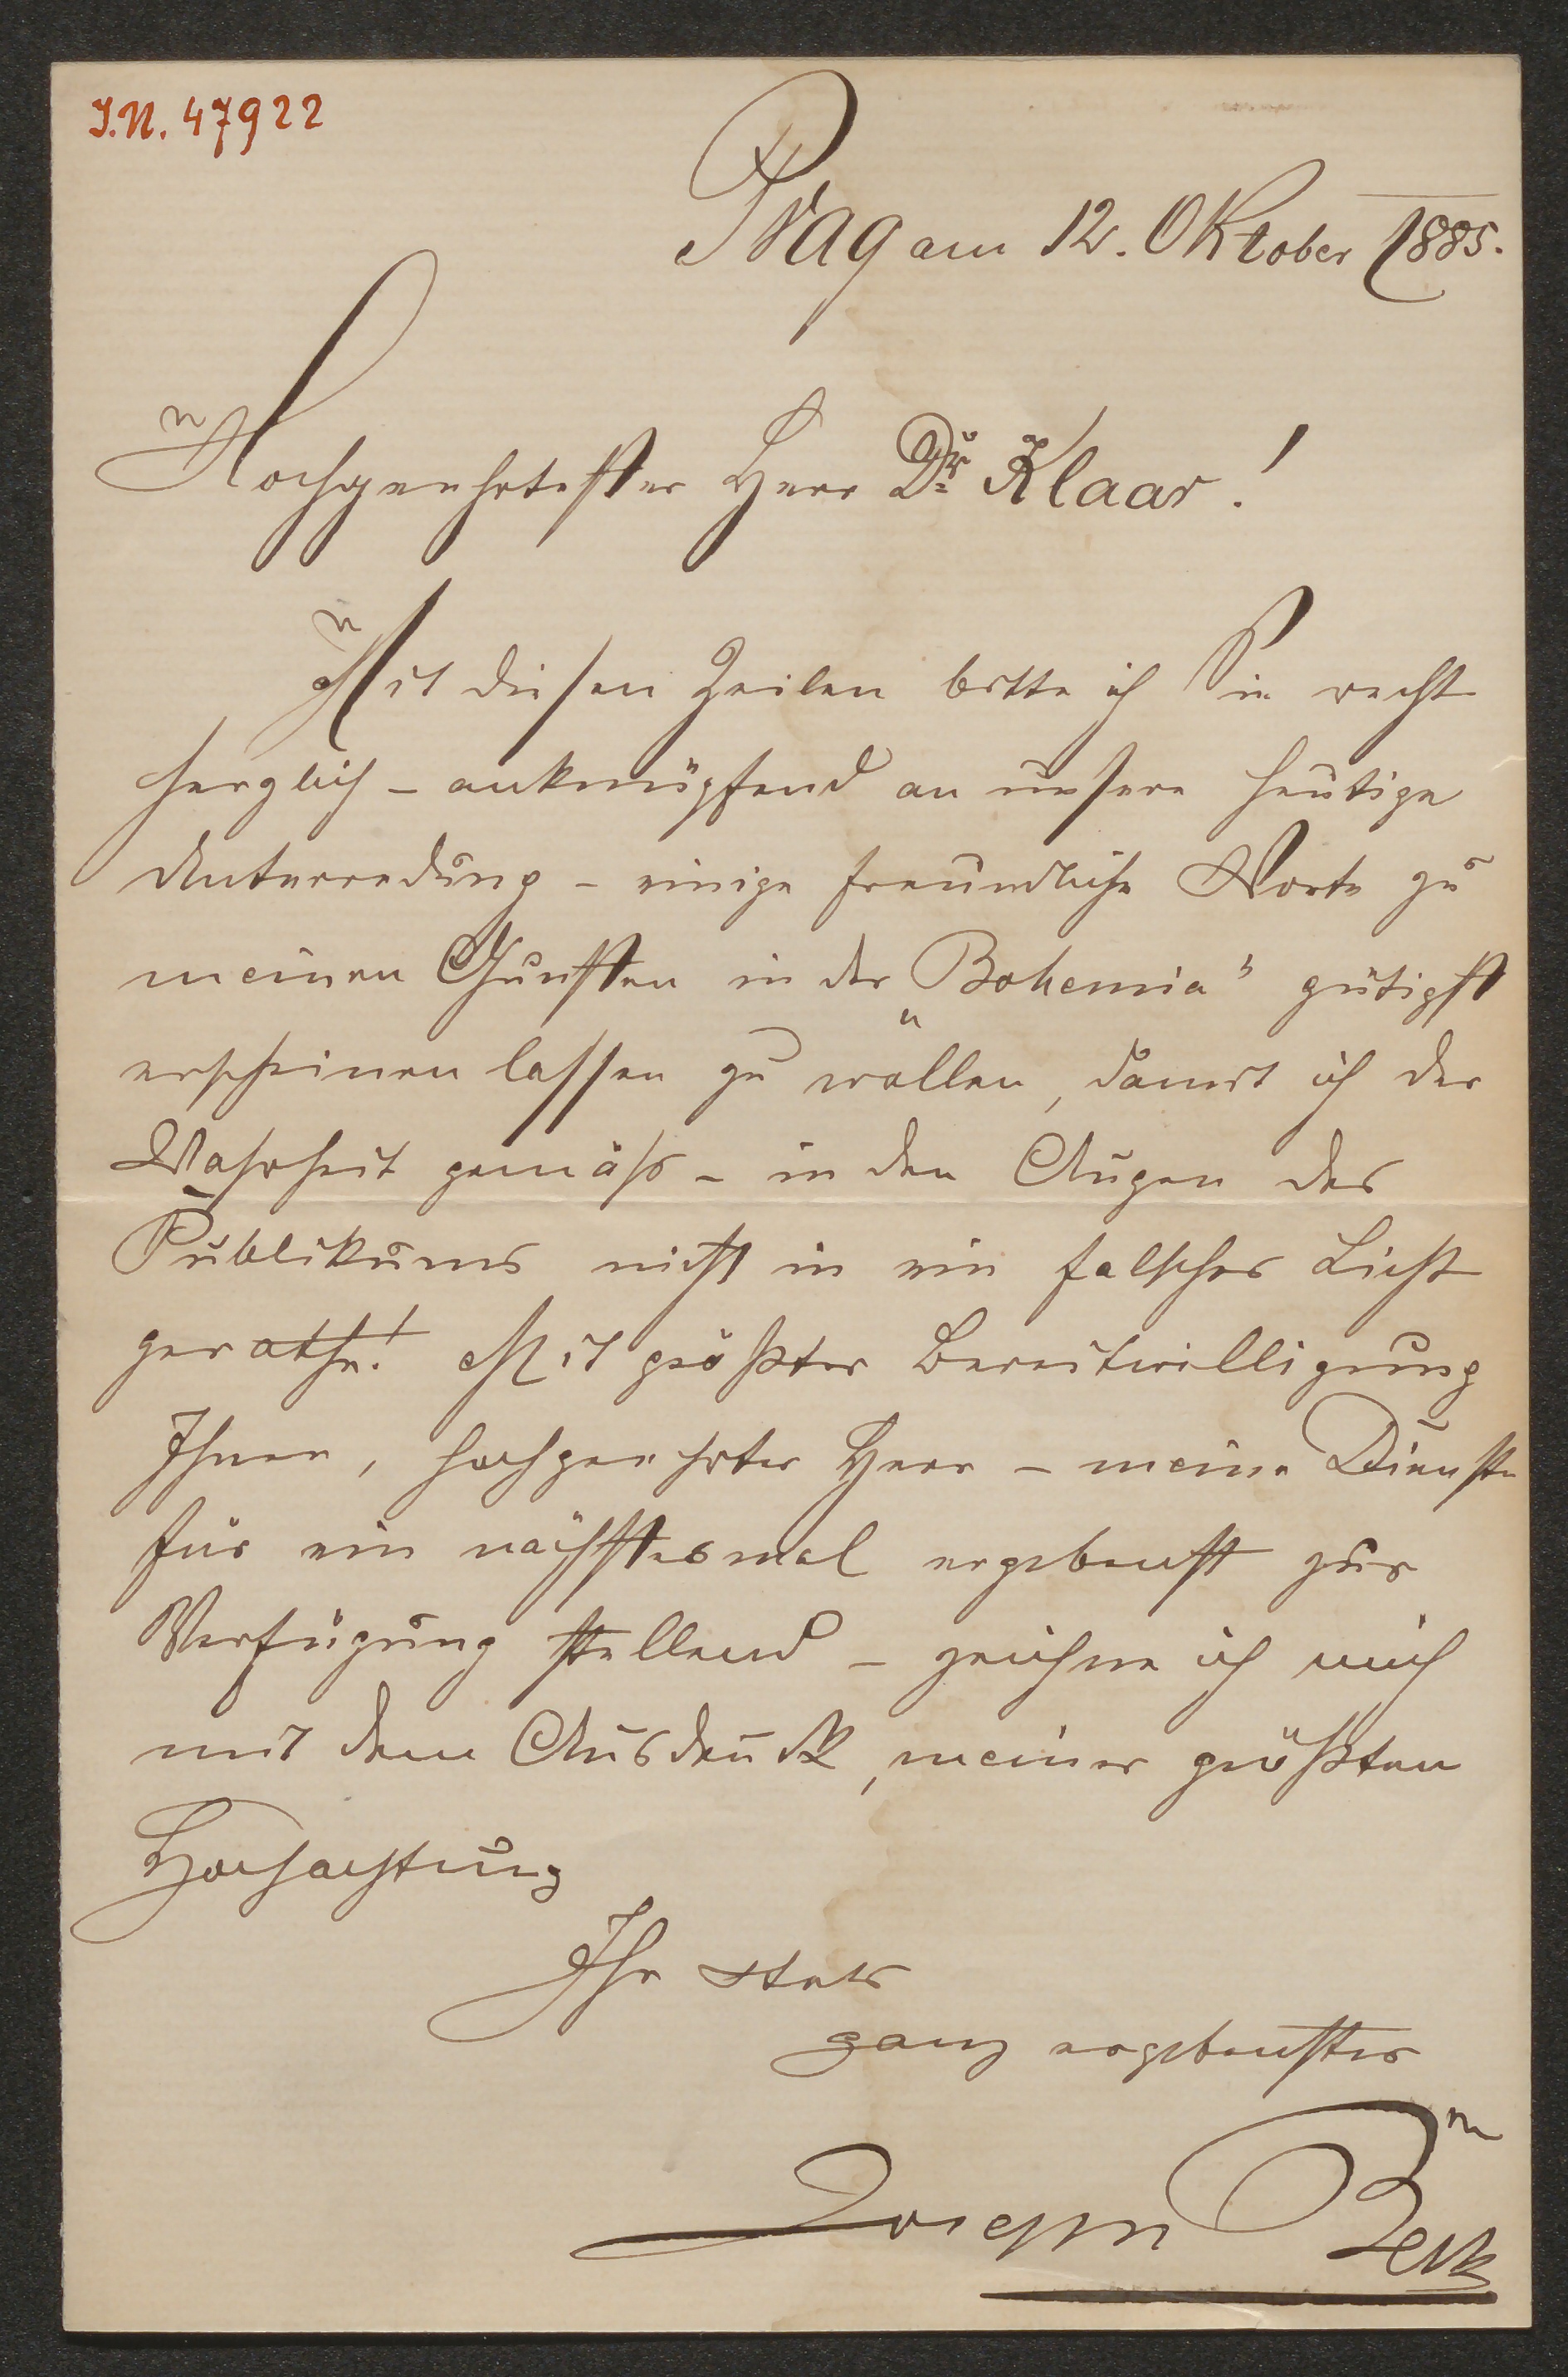 J.N. 47922
Prag am 12. Oktober 1885.
Hochgeehrtester Herr Dr. Klaar!
Mit diesen Zeilen bitte ich Sie recht
herzlich – anknüpfend an unsere heutige
Unterredung – einige freundliche Worte zu
meinen Gunsten in der „Bohemia“ gütigst
erscheinen lassen zu wollen, damit ich der
Wahrheit gemäß – in den Augen des
Publikums nicht in ein falsches Licht
gerathe! Mit größter Bereitwilligung
Ihnen, hochgeehrter Herr – meine Dienste
für ein nächstesmal ergebenst zur
Verfügung stellend – zeichne ich mich
mit dem Ausdruck, meiner größten
Hochachtung
Ihr stets
ganz ergebenster
Joseph Beck